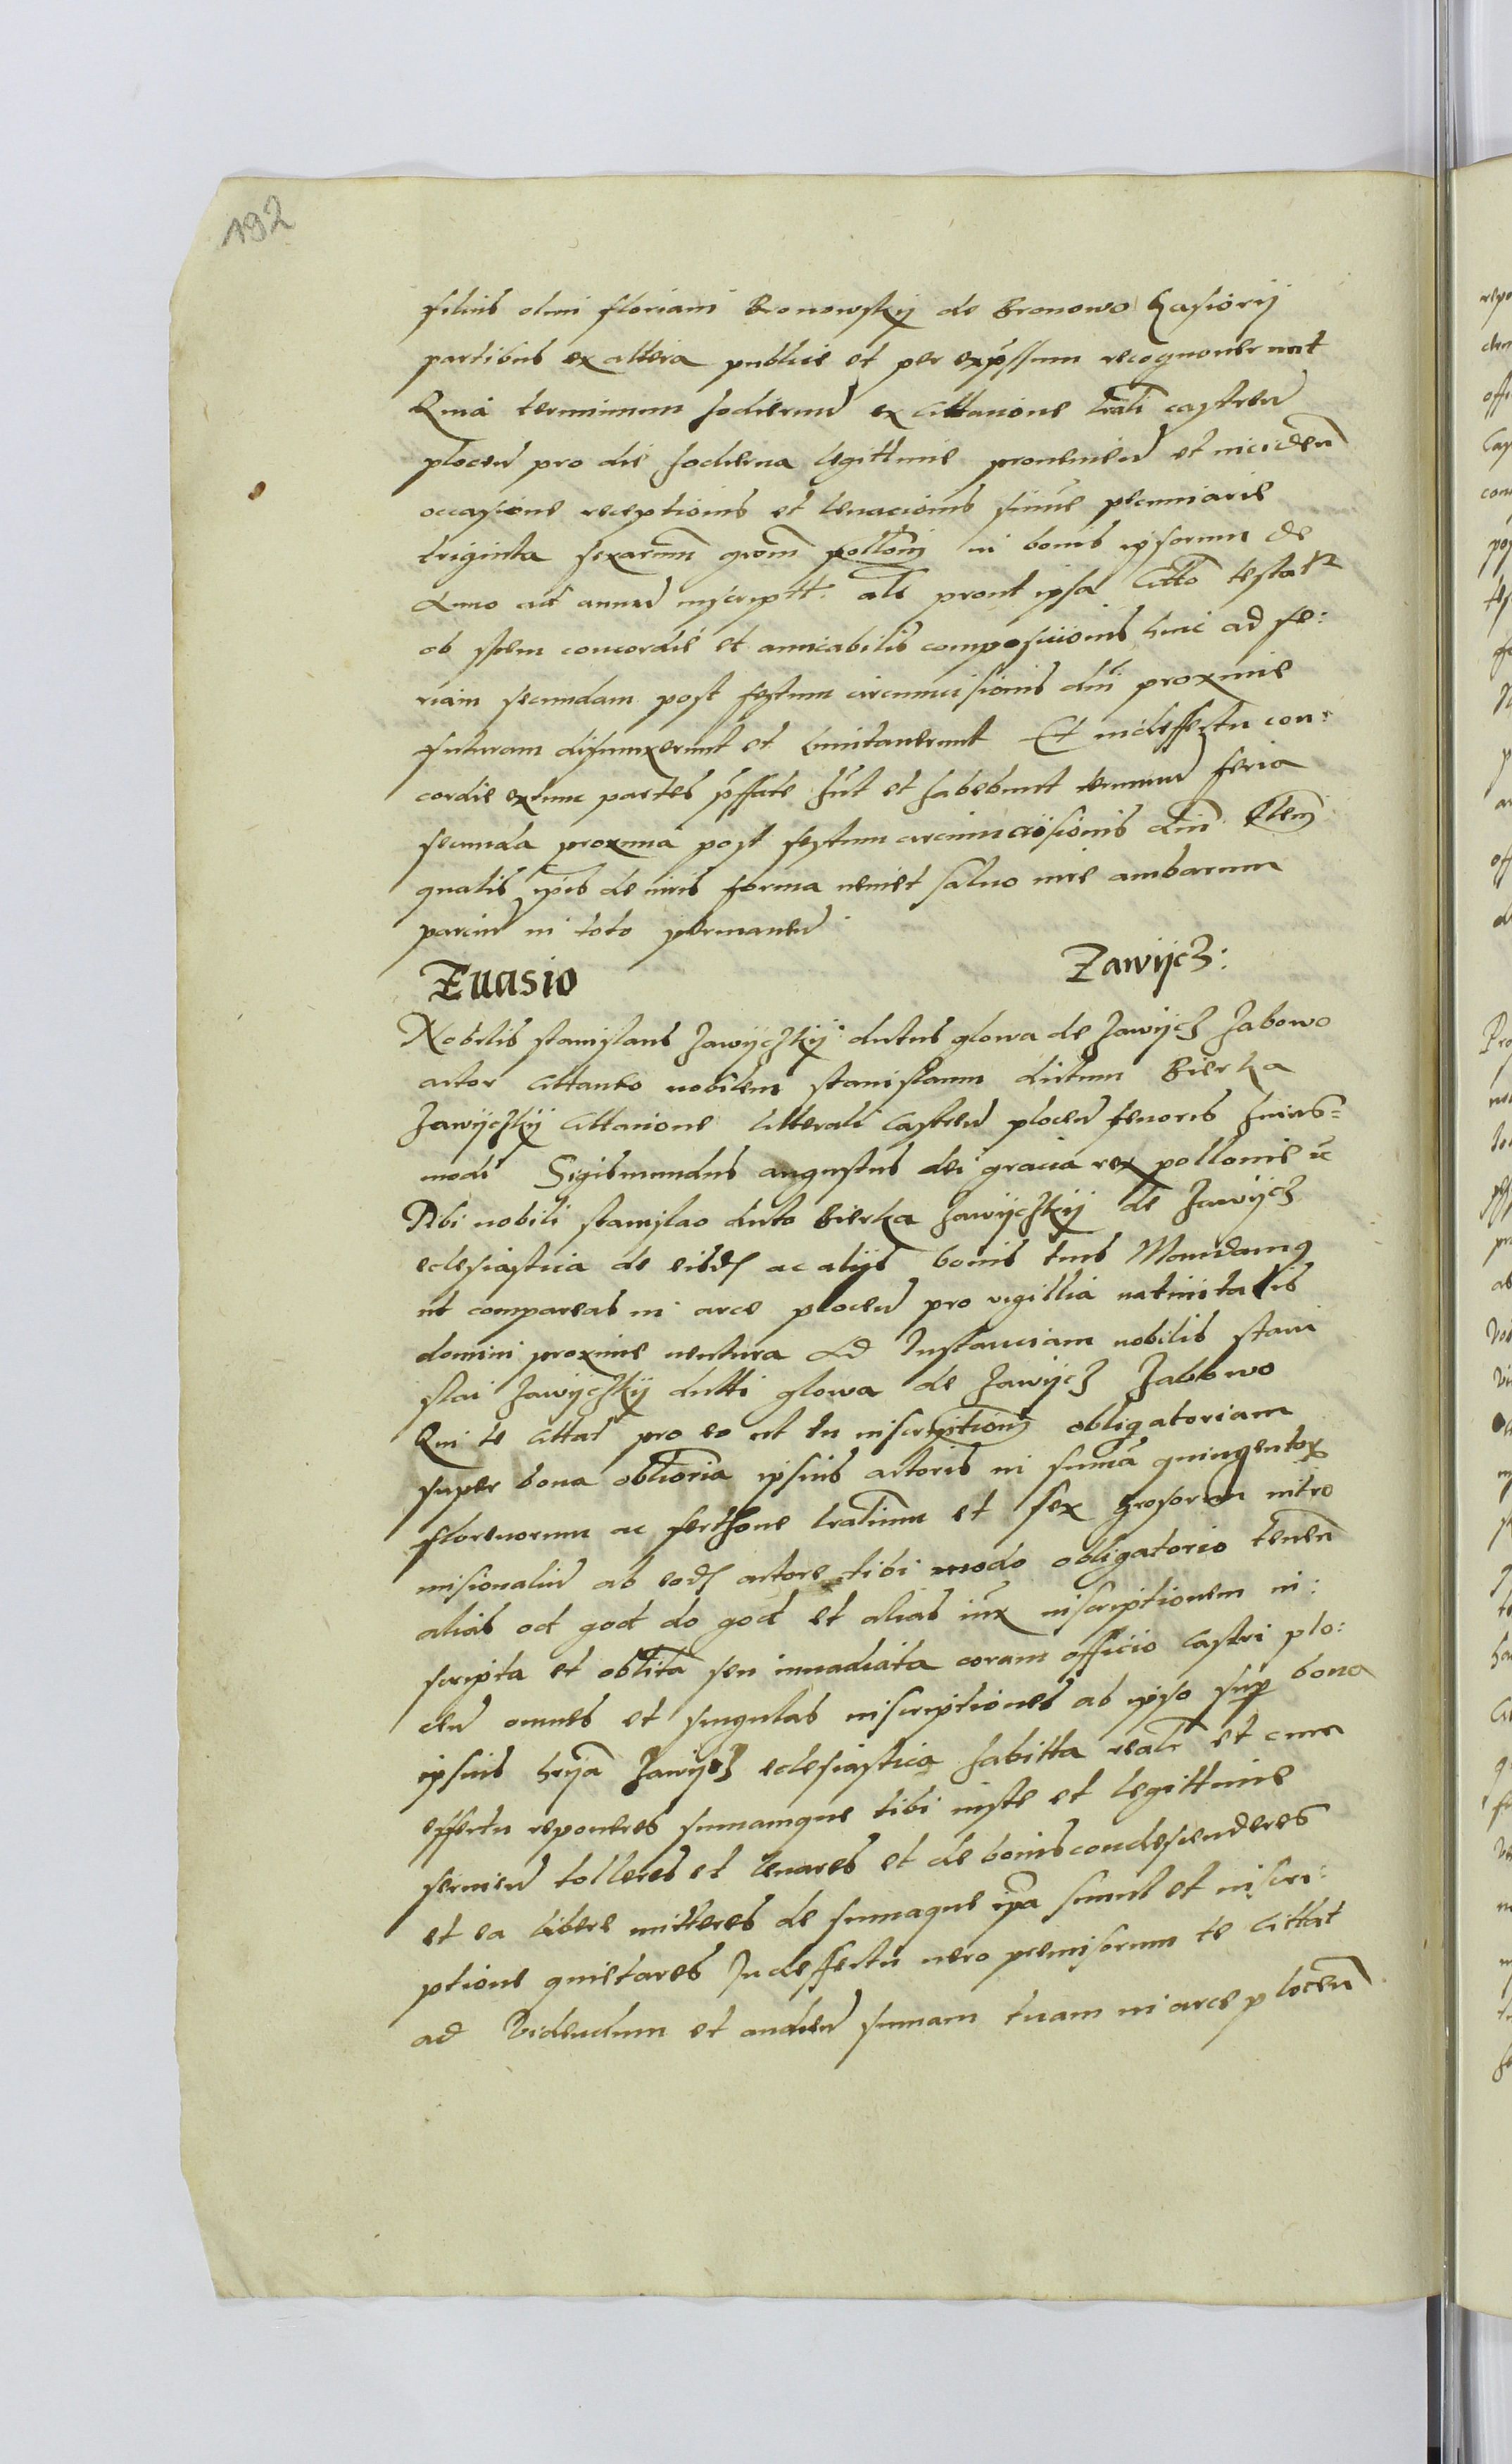 192
filius olim floriani Bronowskij de Bronowo Kasiorij
partibus ex altera publice et per expssum recognouerunt
Quia terminum hodiernu ex Cittacione lrali castren
plocen pro die hodierna legittime prouenien et inciden
occasione receptionis et leuacionis sume pecuniarie
triginta sexarum grom polloni in bonis ipsorum de
Anno ad annu inscriptt. als prout ipsa Citto testatr
ob spem concordie et amicabilis composicionis hinc ad fe:
riam secundam post festum circumcisionis dni proxime
futuram disiunxerunt et limitauerunt Et indeffectu con:
cordie extunc partes pffate hnt et habebunt terminu feria
secunda proxima post festum circumcisionis dni
qualis ipis de iuris forma veniet saluo iure ambarum
parciu in toto permanen
Euasio Zawijcz:
Nobilis stanislaus Zawijczskij dictus glowa de Zawijcz Zabowo
actor Cittauit nobilem stanislaum dictum Bierka
Zawijczskij Cittacione litterali Castren plocen tenoris huius=
modi Sigismundus augustus dei gracia rex pollonie etc
Tibi nobili stanislao dicto Bierka Zawijczskij de Zawijcz
eclesiastica de eisdem ac alijs bonis tuis Mandamus
ut compareas in arce plocen pro vigillia natiuitatis
domini proxime ventura Ad Instanciam nobilis stani
slai Zawijczskij dicti glowa de Zawijcz Zabowo
Qui te Cittat pro eo ut tu inscriptionem obligatoriam
super bona oblioria ipsius actoris in suma quingentorum
florenorum ac ferthone tralium et sex grosorum intro
misionaliu ab eodem actore tibi modo obligatorio tenen
alias od god do god et alias iux inscriptionem in:
scripta et oblita seu inuadiata coram officio Castri plo:
cen omnes et singulas inscriptiones ab ipso sup bona
ipsius hrija Zawijcz eclesiastica habitta reali et cum
effectu reponeres sumamque tibi iuste et legittime
seruien tolleres et leuares et de bonis condescenderes
et ea libere mitteres de sumaque ipa simul et inscri:
ptione quietares Indeffectu vero premisorum te Cittat
ad Videndum et audien sumam tuam in arce plocen